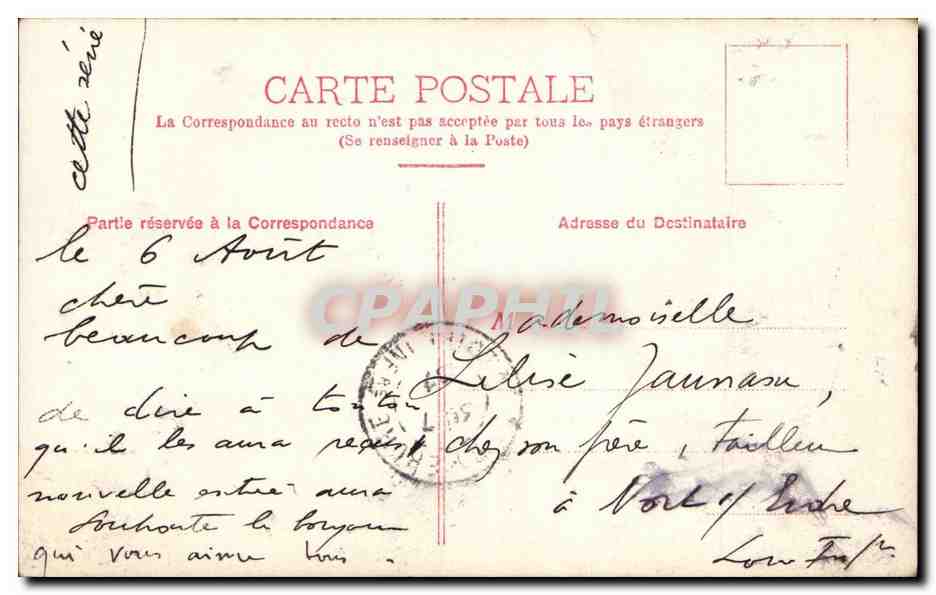 cette série
CARTE POSTALE
La Correspondance au recto n'est pas acceptée par tous les pays étrangers
(Se renseigner à la Poste)
Partie réservée à la Correspondance
le 6 Août
chère
beaucoup de
de dire à tonton
qu'il les aura reçus
nouvelle aura
le bonjour
qui vous aime tous.
Adresse du Destinataire
CPAPHIL
Mademoiselle
chez son père, Tailleur
à Nort s/ Erdre
Loire Infre